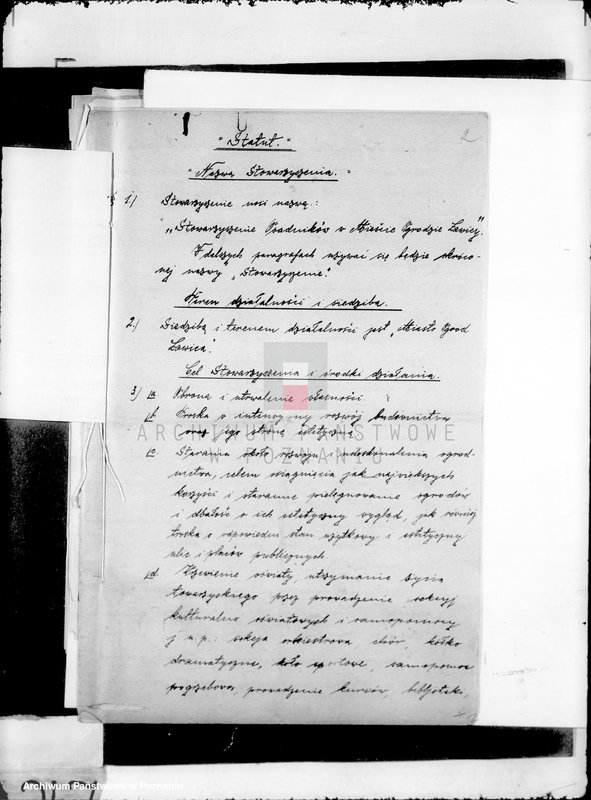 2
"Statut."
"Nazwa Stowarzyszenia."
§ 1.) Stowarzyszenie nosi nazwę:
"Stowarzyszenie Osadników w Mieście Ogrodzie Ławicy."
W dalszych paragrafach używać się będzie skróco-
nej nazwy "Stowarzyszenie".
Teren działalności i siedziba.
2.) Siedzibą i terenem działalności jest "Miasto Gród
Ławica".
Cel Stowarzyszenia i środki działania.
3.) a. Obrona i utrwalenie własności.
b. Troska o intensywny rozwój budownictwa
oraz jego stronę estetyczną
c. Starania około rozwoju i udoskonalenia ogrod-
nictwa, celem osiągnięcia jak największych
korzyści i staranne pielęgnowanie ogrodów
i dbałość o ich estetyczny wygląd, jak również
troska o odpowiedni stan użytkowy i estetyczny
ulic i placów publicznych.
d. Krzewienie oświaty, utrzymanie życia
towarzyskiego przez prowadzenie sekcyj
kulturalno oświatowych i samopomocy
j n.p.: sekcja orkiestrowa, chór, kółko
dramatyczne, koło sportowe, samopomoc
pogrzebowa, prowadzenie kursów, bibljoteki,
ARCHIWUM PAŃSTWOWE
W POZNANIU
Archiwum Państwowe w Poznaniu